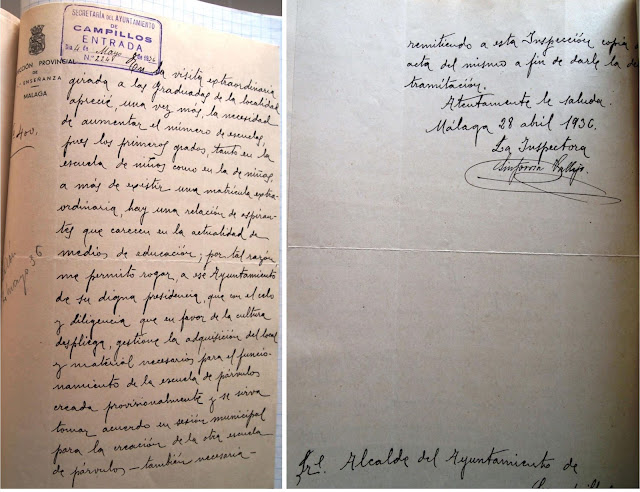 SECRETARÍA DEL AYUNTAMIENTO
DE
CAMPILLOS
ENTRADA
Día 4 de Mayo de 1936
N.º 224
CCIÓN PROVINCIAL
DE
ENSEÑANZA
MALAGA
400,
mayo 36
En la visita extraordinaria
girada a las graduadas de la localidad
aprecié, una vez más, la necesidad
de aumentar el número de escuelas,
pues los primeros grados, tanto en la
escuela de niños como en la de niñas,
a más de existir una matrícula extra-
ordinaria, hay una relación de aspiran-
tes que carecen en la actualidad de
medios de educación; por tal razón
me permito rogar, a ese Ayuntamiento
de su digna presidencia, que con el celo
y diligencia que en favor de la cultura
despliega, gestione la adquisición del local
y material necesarios para el funcio-
namiento de la escuela de párvulos
creada provisionalmente y se sirva
tomar acuerdo en sesión municipal
para la creación de la otra escuela
de párvulos - también necesaria -
remitiendo a esta Inspección copia
acta del mismo a fin de darle la de
tramitación.
Atentamente le saluda.
Málaga 28 abril 1936.
La Inspectora
Sinforosa Vallejo.
Sr. Alcalde del Ayuntamiento de